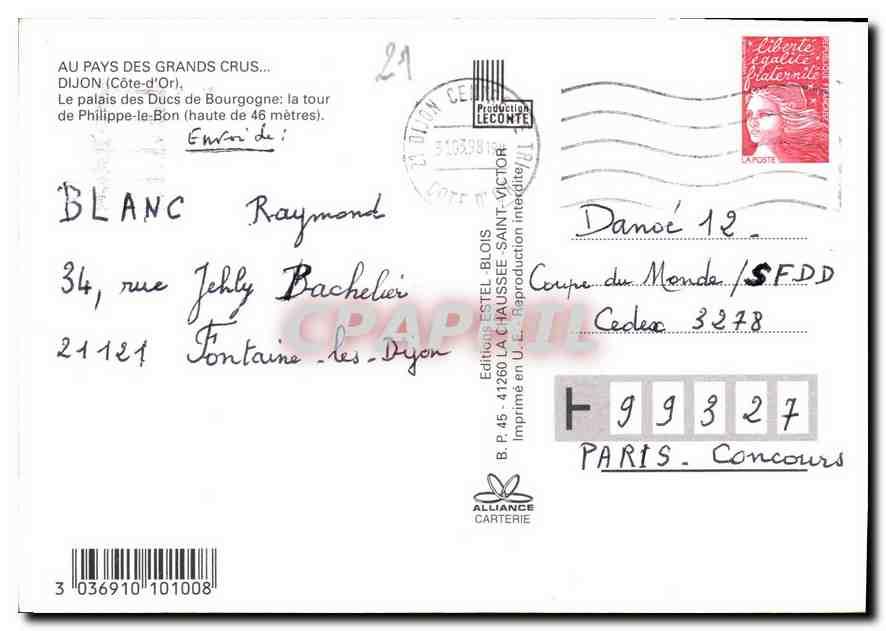 AU PAYS DES GRANDS CRUS...
DIJON (Côte-d'Or),
Le palais des Ducs de Bourgogne: la tour
de Philippe-le-Bon (haute de 46 mètres).
Envoi de:
BLANC Raymond
34, rue Jehly Bachelier
21121 Fontaine-les-Dijon
21
Production
LECONTE
21 DIJON TRI
31.03.98
COTE D'
liberté
égalité
fraternité
RÉPUBLIQUE FRANÇAISE
LA POSTE
Editions ESTEL-BLOIS
B. P. 45 - 41260 LA CHAUSSEE-SAINT-VICTOR
Imprimé en U.E. - Reproduction interdite
Danoé 12 -
Coupe du Monde / SFDD
Cedex 3278
99327
PARIS - Concours
CPAPHIL
ALLIANCE
CARTERIE
3 036910 101008